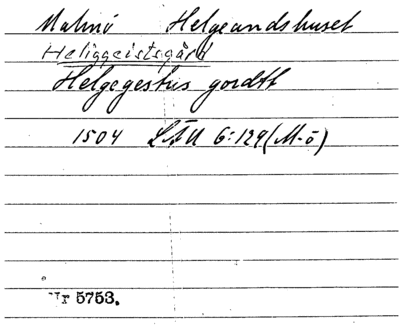 Malmö Helgeandshuset
Heliggeistsgård
Helgegestus gordtt
1504 LÄU 6:129 (M-ö)
Nr 5753.